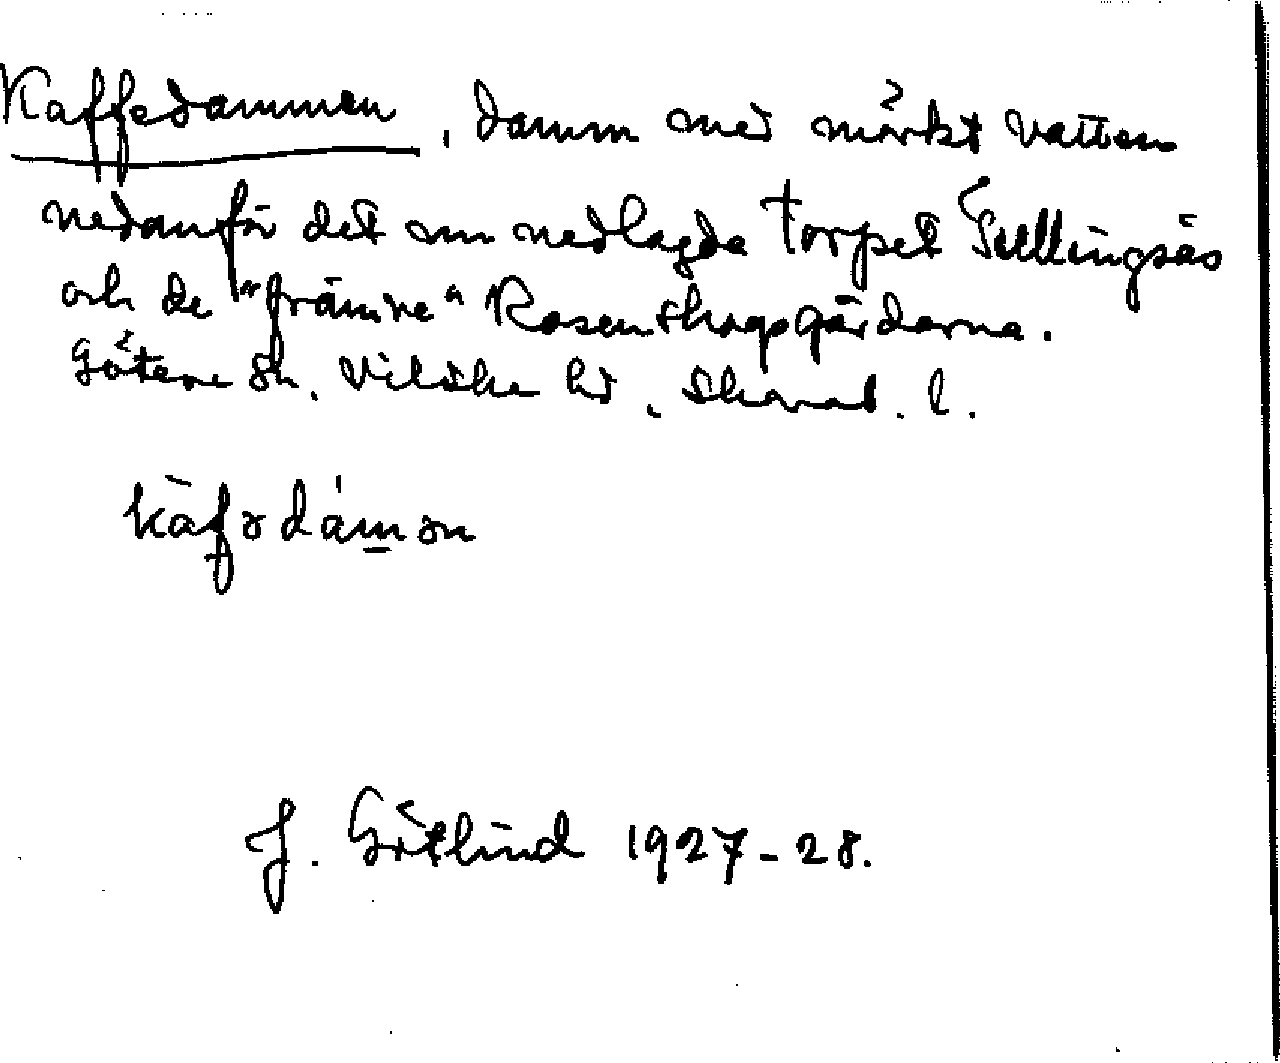 Kaffedammen, damm med mörkt vatten
nedanför det nu nedlagda torpet Sullingsås
och de "främre" Rosenskogsgårdarna.
Götene sn. Vilske hd, Skarab. l.
kafədamən
J. Götlind 1927-28.